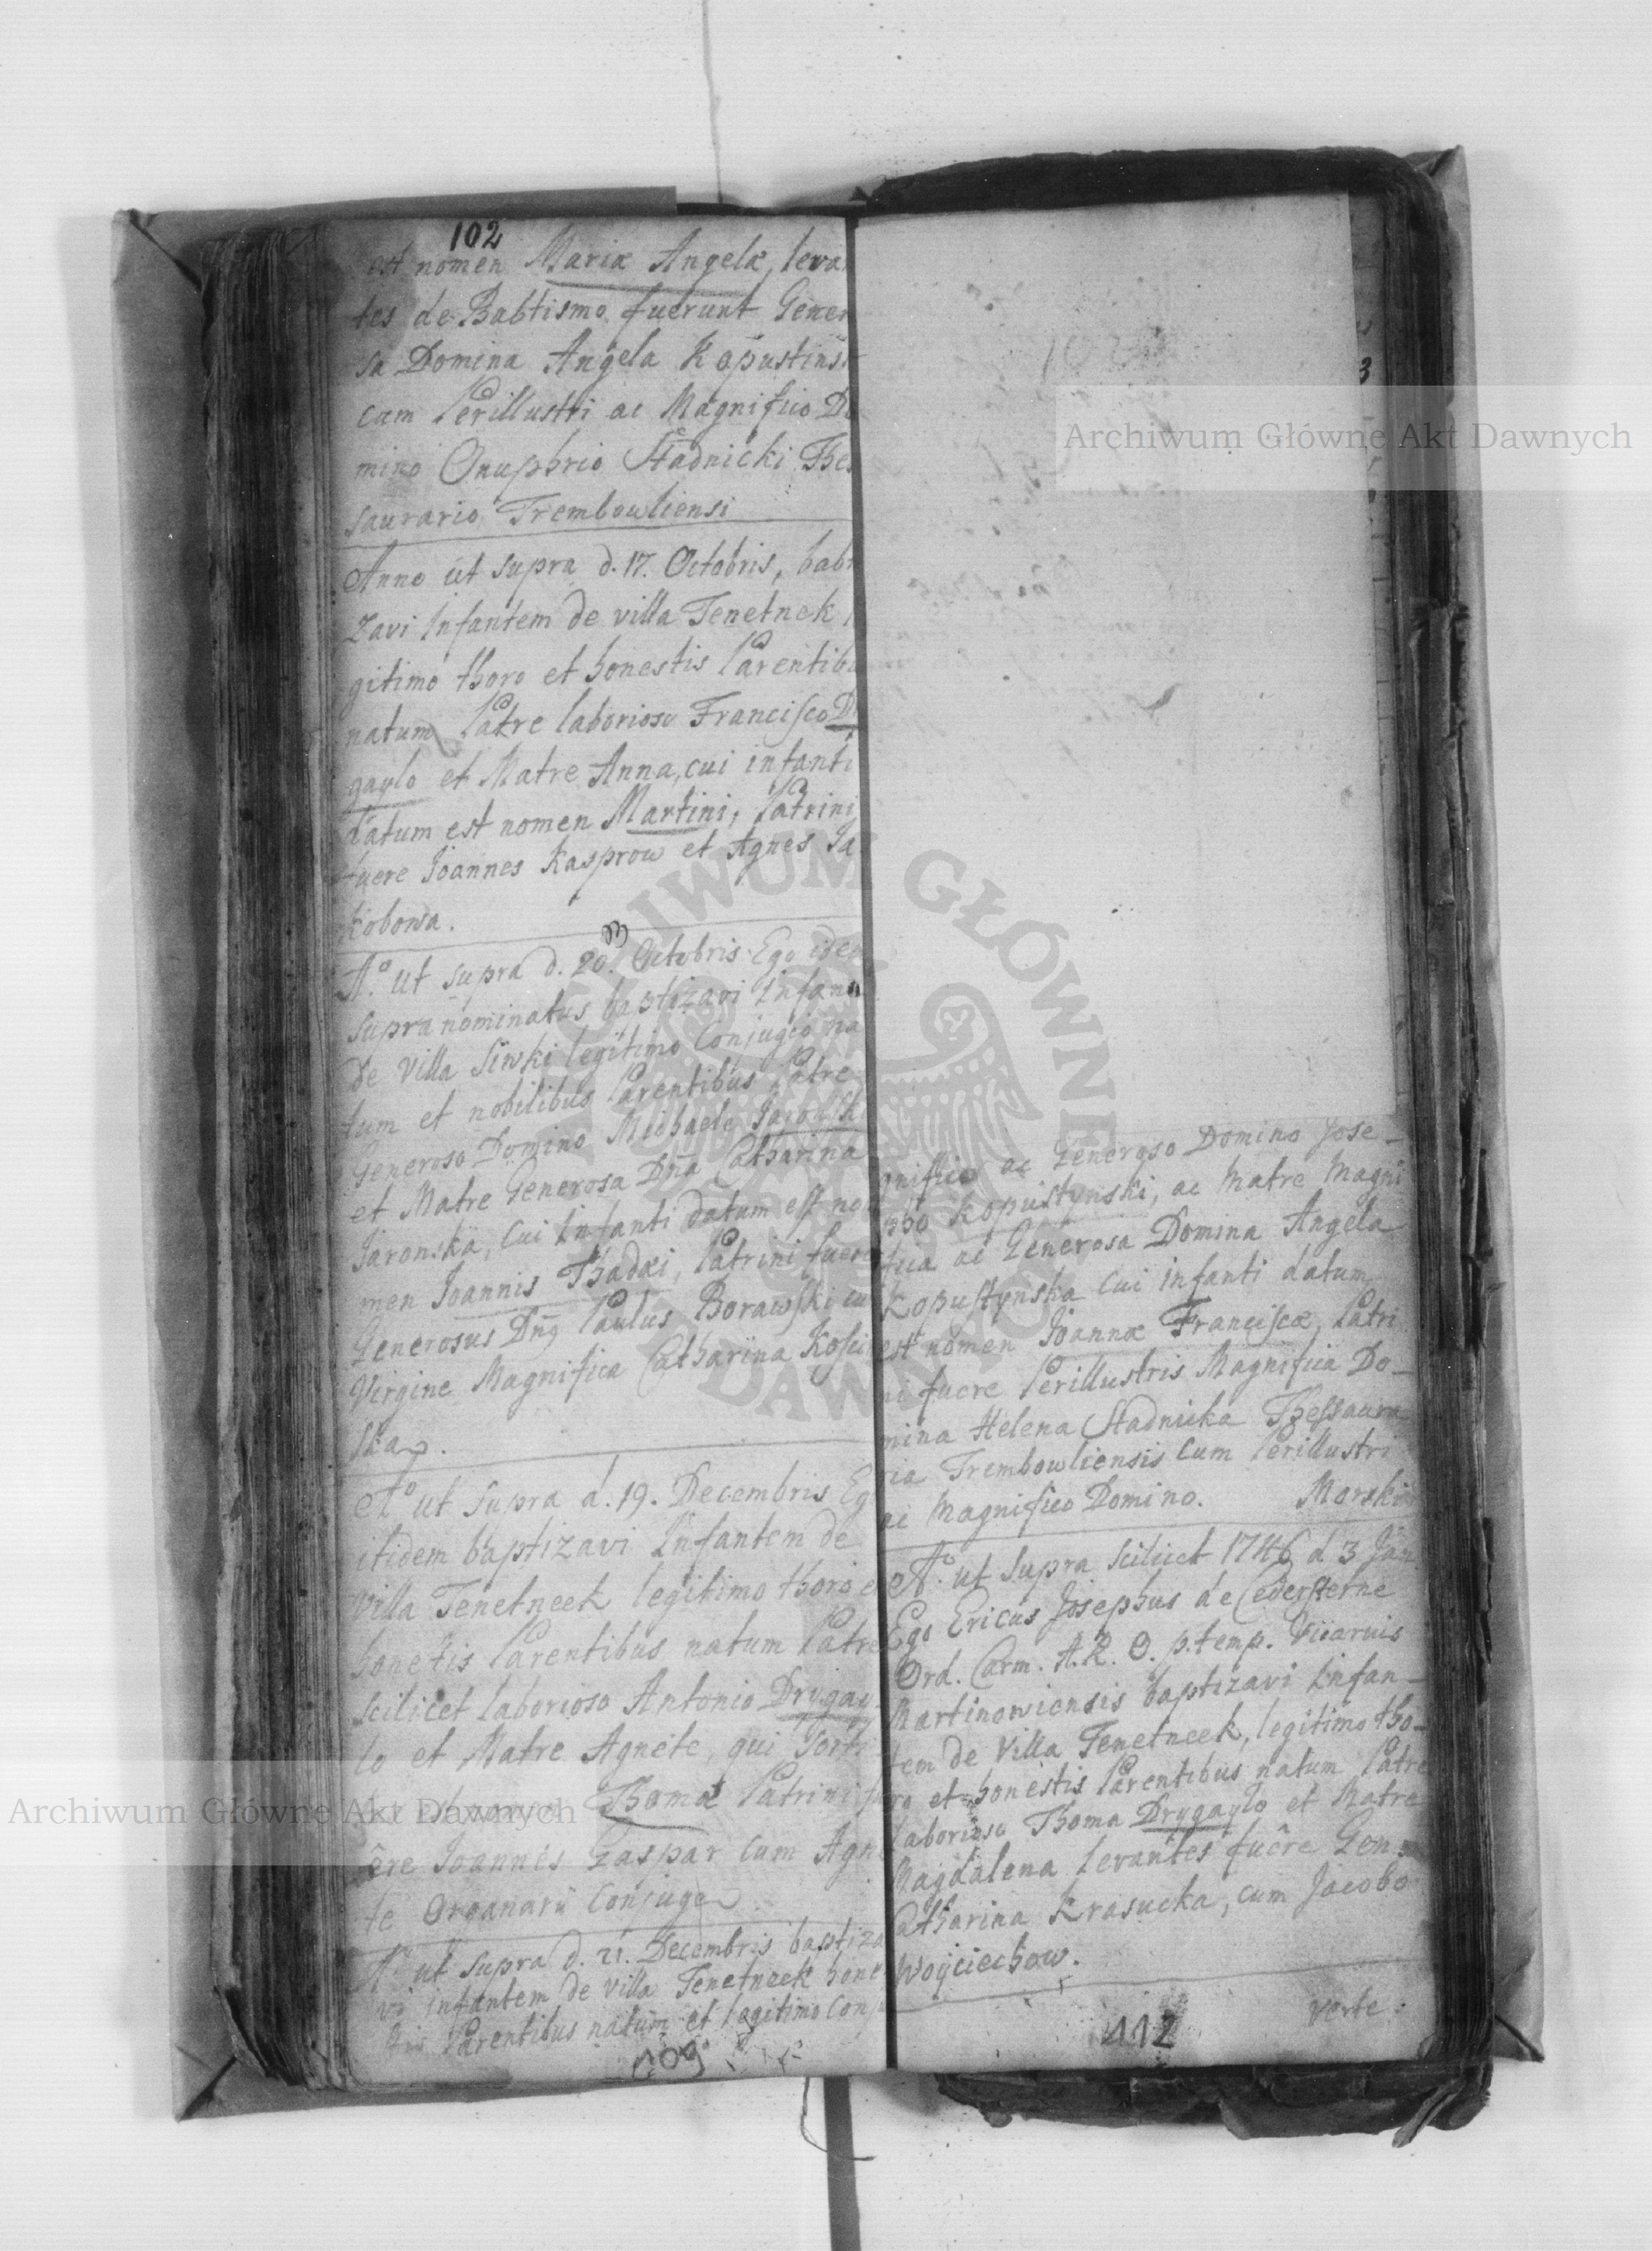 102
est nomen Mariæ Angelæ, leva
tes de Babtismo fuerunt Gener
sa Domina Angela Kopustins
cum Perillustri ac Magnifico Do
mino Onuphrio Stadnicki The
saurario Trembowliensi
Anno ut supra d. 17. Octobris, bab
zavi Infantem de villa Tenetnek
gitimo thoro et honestis Parentibu
natum Patre laborioso Francisco D
gaylo et Matre Anna, cui infanti
datum est nomen Martini, Patrini
fuere Joannes Kasprow et Agnes Ja
kobowa.
Aº. ut supra d. 20. Octobris Ego idem
supra nominatus baptizavi Infan
de Villa Siwki legitimo Conjugio na
tum et nobilibus Parentibus Patre
Generoso Domino Michaele Jaronsk
et Matre Generosa Dña Catharina
Jaronska, Cui Infanti datum est no
men Joannis Thadæi, Patrini fuere
Generosus Dng Paulus Borawski cu
Virgine Magnifica Catharina Kosci
ska.
Aº ut supra d. 19. Decembris Eg
itidem baptizavi Infantem de
Villa Tenetneek legitimo thoro e
honetis Parentibus natum Patre
scilicet laborioso Antonio Drygay
lo et Matre Agnete, qui Sorti
est nomen Thomæ Patrini fu
ere Joannes Gaspar cum Agne
te Organarii Conjuge
Aº ut supra d. 21. Decembris baptiza
vi Infantem de Villa Tenetneek hone
Parentibus natum et legitimo Conju
109
3
gnifico ac Generoso Domino Jose-
pho Kopustynski, ac Matre Magni
fica ac Generosa Domina Angela
Kopustynska cui infanti datum
est nomen Joannæ Franciscæ, Patri
ni fuere Perillustris Magnifica Do-
mina Helena Stadnicka Thessaura
ria Trembowliensis cum Perillustri
ac Magnifico Domino. Morski
Aº. ut supra scilicet 1746 d 3 Jan
Ego Ericus Josephus de Cedersterne
Ord. Carm. A. R. O. p. temp. Vicarius
Martinowiensis baptizavi Infan-
tem de Villa Tenetneek, legitimo tho-
ro et honestis Parentibus natum Patre
laborioso Thoma Drygaylo et Matre
Magdalena levantes fuêre Gen:
Catharina Krasucka, cum Jacobo
Woyciechow.
verte:
112
Archiwum Główne Akt Dawnych
Archiwum Główne Akt Dawnych
ARCHIWUM GŁÓWNE AKT DAWNYCH